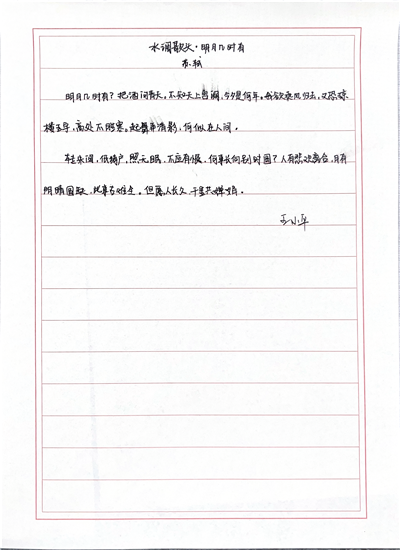 水调歌头·明月几时有
苏轼
明月几时有？把酒问青天。不知天上宫阙，今夕是何年。我欲乘风归去，又恐琼
楼玉宇，高处不胜寒。起舞弄清影，何似在人间。
转朱阁，低绮户，照无眠。不应有恨，何事长向别时圆？人有悲欢离合，月有
阴晴圆缺，此事古难全。但愿人长久，千里共婵娟。
王小平